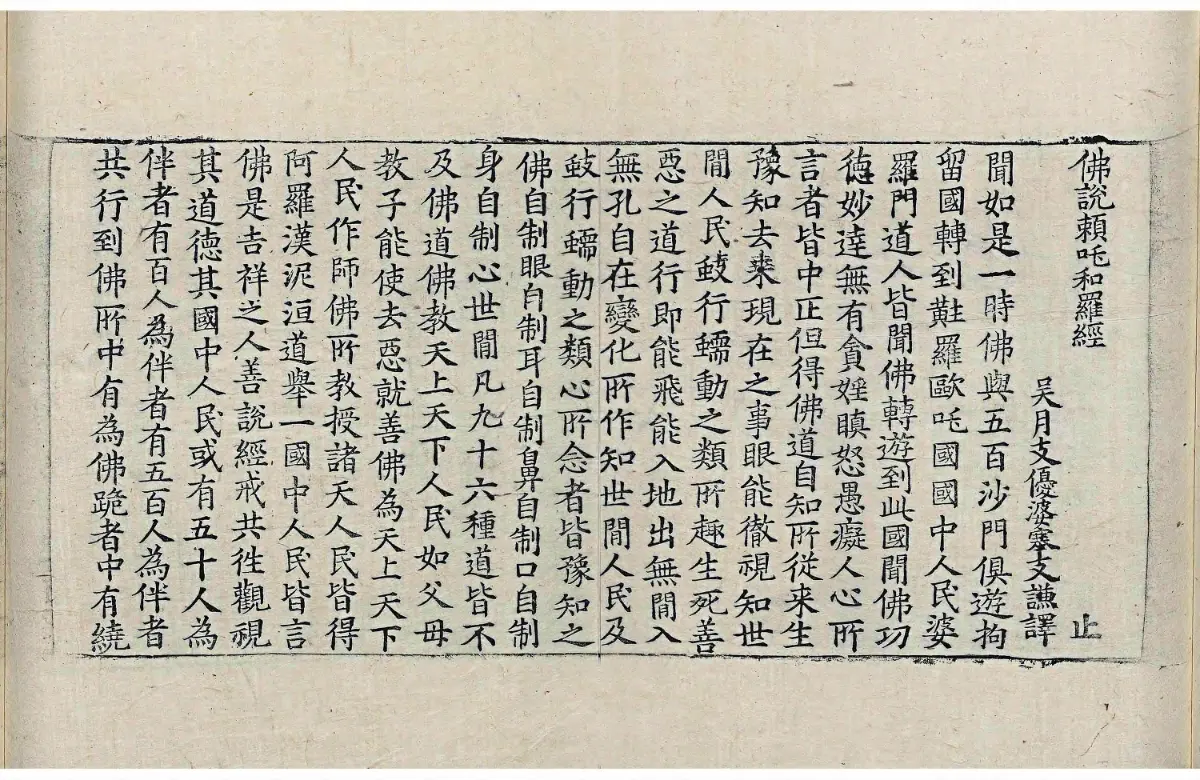 佛說賴吒和羅經
吳月支優婆塞支謙譯 止
聞如是一時佛與五百沙門俱遊拘
留國轉到黈羅歐吒國國中人民婆
羅門道人皆聞佛轉遊到此國聞佛功
德妙達無有貪婬瞋怒愚癡人心所
言者皆中正但得佛道自知所從来生
豫知去来現在之事眼能徹視知世
間人民蚑行蠕動之類所趣生死善
惡之道行即能飛能入地出無間入
無孔自在變化所作知世間人民及
蚑行蠕動之類心所念者皆豫知之
佛自制眼自制耳自制鼻自制口自制
身自制心世間凡九十六種道皆不
及佛道佛教天上天下人民如父母
教子能使去惡就善佛為天上天下
人民作師佛所教授諸天人民皆得
阿羅漢泥洹道舉一國中人民皆言
佛是吉祥之人善說經戒共往觀視
其道德其國中人民或有五十人為
伴者有百人為伴者有五百人為伴者
共行到佛所中有為佛跪者中有繞